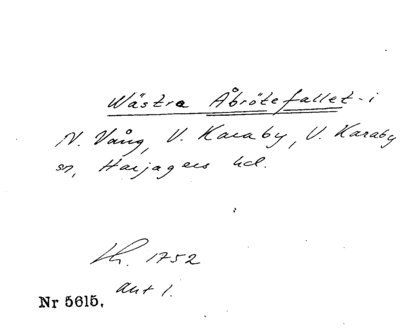 Wästra Åbrötefallet - i
N. Vång, V. Karaby, V. Karaby
sn, Harjagers hd.
Lh. 1752
ant 1.
Nr 5615.